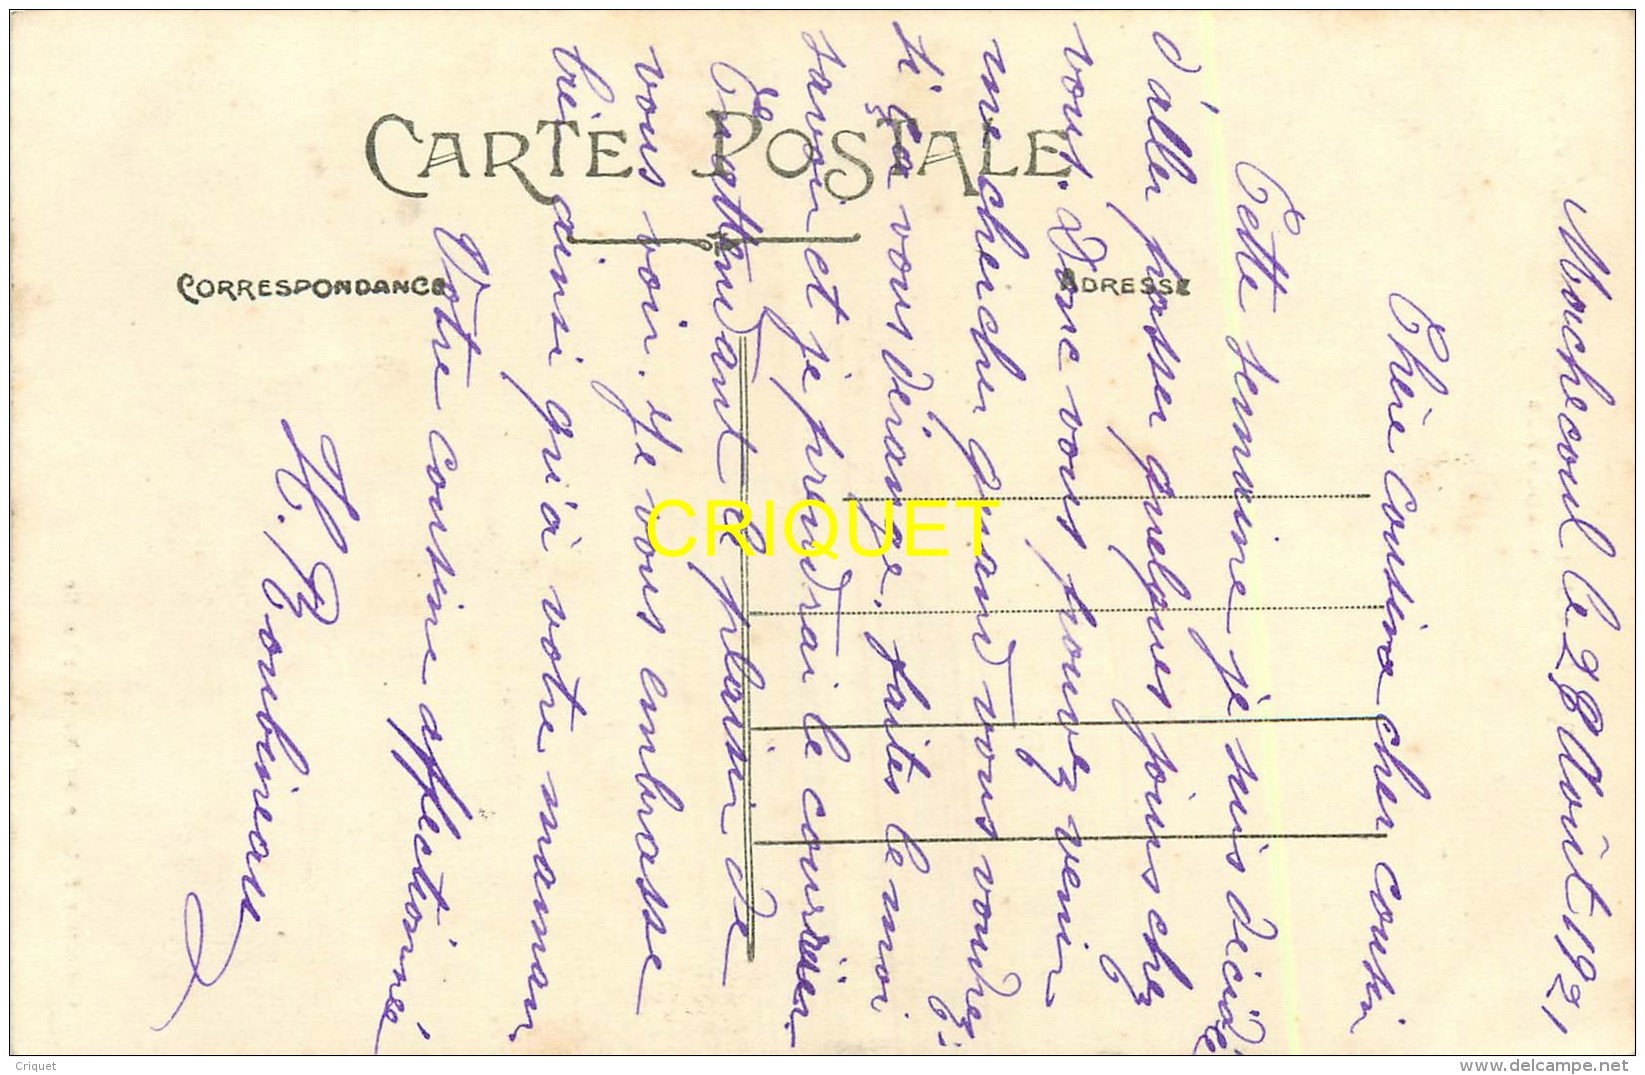 CARTE POSTALE
CORRESPONDANCE
ADRESSE
Machecoul le 28 Août 1921
Chère cousine cher cousin
Cette semaine je suis décidé
d'aller passer quelques jours chez
vous. Donc vous pouvez venir
me chercher quand vous voudrez
si ça vous dérange. faites le moi
savoir et je prendrai le courrier.
En attendant le plaisir de
vous voir. Je vous embrasse
bien ainsi qu'à votre maman
Votre cousine affectionnée
H. Boubineau
CRIQUET
Criquet
www.delcampe.net